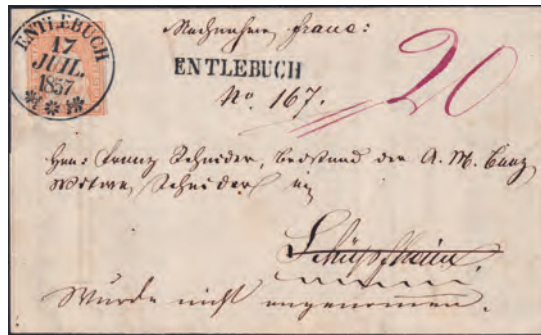 ENTLEBUCH
17
JUIL.
1857
Nachnahme franco:
ENTLEBUCH
No 167.
20
Herr Franz Schnider, Beistand der A. M.
Witwe Schnider in
Schüpfheim.
Wurde nicht angenommen.